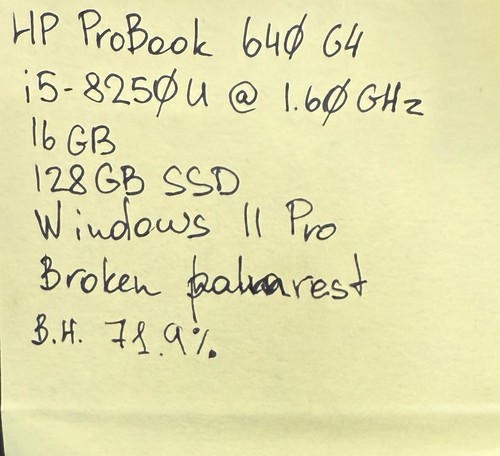 HP ProBook 640 G4
i5-8250U @ 1.60GHz
16GB
128GB SSD
Windows 11 Pro
Broken palmrest
B.H. 71.9%